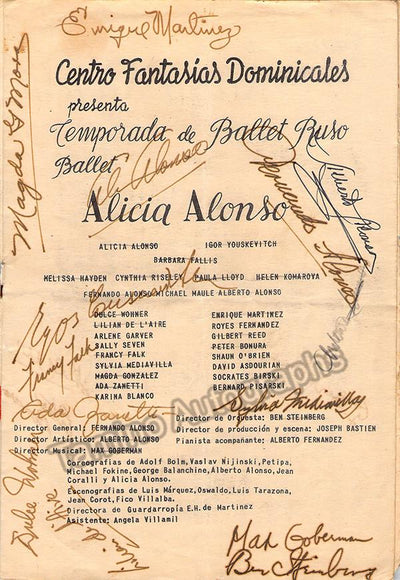 Enrique Martinez
Centro Fantasías Dominicales
presenta
Temporada de Ballet Ruso
Ballet
Alicia Alonso
Magda G Mons
Alonso
Alberto Alonso
Fernando Alonso
ALICIA ALONSO IGOR YOUSKEVITCH
BARBARA FALLIS
MELISSA HAYDEN CYNTHIA RISELEY PAULA LLOYD HELEN KOMAROVA
FERNANDO ALONSO MICHAEL MAULE ALBERTO ALONSO
DULCE WOHNER ENRIQUE MARTINEZ
LILIAN DE L'AIRE ROYES FERNANDEZ
ARLENE GARVER GILBERT REED
SALLY SEVEN PETER BONURA
FRANCY FALK SHAUN O'BRIEN
SYLVIA MEDIAVILLA DAVID ASDOURIAN
MAGDA GONZALEZ SOCRATES BIRSKI
ADA ZANETTI BERNARD PISARSKI
KARINA BLANCO
Francy Falk
Ada Zanetti
Sylvia Mediavilla
Tamino Autographs
Director de Orquesta: BEN STEINBERG
Director General: FERNANDO ALONSO Director de producción y escena: JOSEPH BASTIEN
Director Artístico: ALBERTO ALONSO Pianista acompañante: ALBERTO FERNANDEZ
Director Musical: MAX GOBERMAN
Coreografías de Adolf Bolm, Vaslav Nijinski, Petipa,
Michael Fokine, George Balanchine, Alberto Alonso, Jean
Coralli y Alicia Alonso.
Escenografías de Luis Márquez, Oswaldo, Luis Tarazona,
Jean Corot, Fico Villalba.
Directora de Guardarropía E.H. de Martinez
Asistente: Angela Villamil
Dulce Wohner
Max Goberman
Ben Steinberg